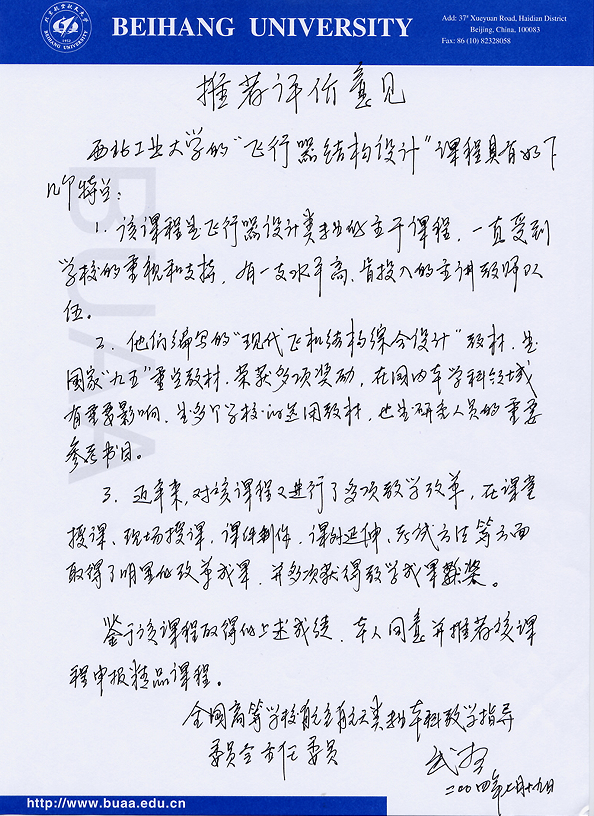 BEIHANG UNIVERSITY
Add: 37# Xueyuan Road, Haidian District
Beijing, China, 100083
Fax: 86 (10) 82328058
推荐评价意见
西北工业大学的"飞行器结构设计"课程具有如下
几个特点:
1. 该课程是飞行器设计类专业主干课程,一直受到
学校的重视和支持,有一支水平高、肯投入的主讲教师队
伍。
2. 他们编写的"现代飞机结构综合设计"教材,是
国家"九五"重点教材,荣获多项奖励,在国内本学科领域
有重要影响,是多个学校的选用教材,也是研究人员的重要
参考书目。
3. 近年来,对该课程又进行了多项教学改革,在课堂
授课、现场授课、课件制作、课外延伸、考试方法等方面
取得了明显的改革成果,并多次获得教学成果奖。
鉴于该课程取得的上述成绩,本人同意并推荐该课
程申报精品课程。
全国高等学校航空航天类专业本科教学指导
委员会主任委员
二〇〇四年七月十九日
BUAA
http://www.buaa.edu.cn